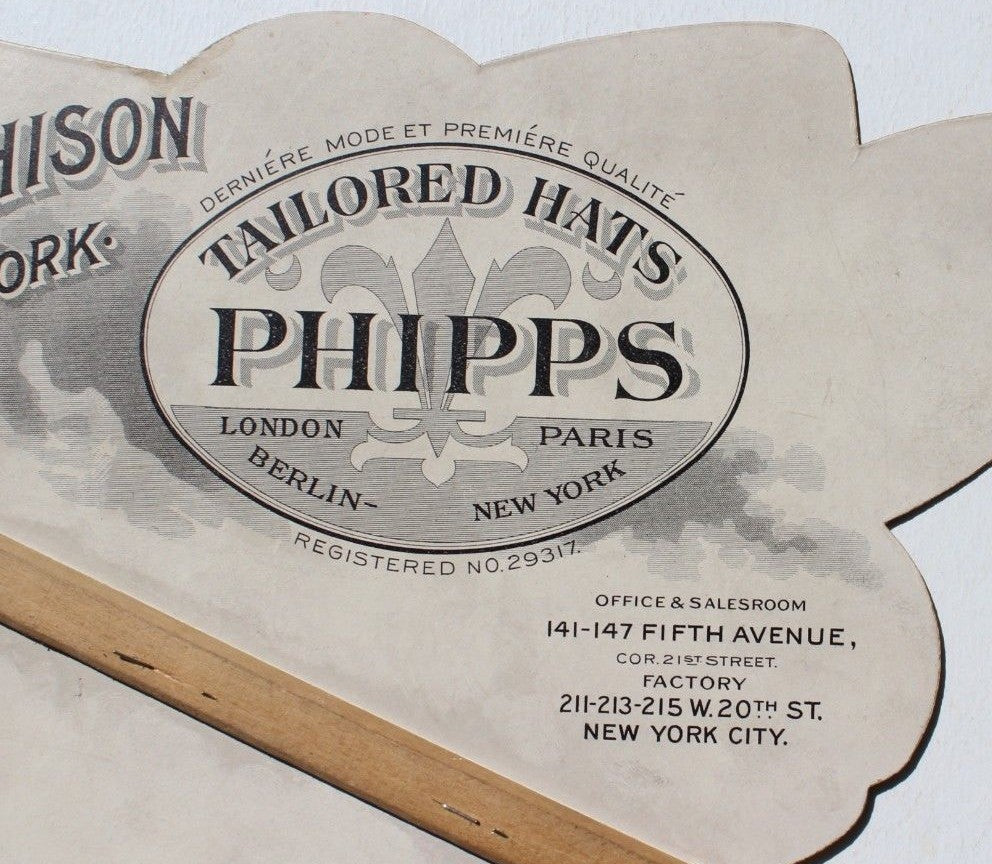 HISON
ORK.
DERNIÉRE MODE ET PREMIÉRE QUALITÉ
TAILORED HATS
PHIPPS
LONDON PARIS
BERLIN- NEW YORK
REGISTERED NO. 29317.
OFFICE & SALESROOM
141-147 FIFTH AVENUE,
COR. 21ST STREET.
FACTORY
211-213-215 W. 20TH ST.
NEW YORK CITY.